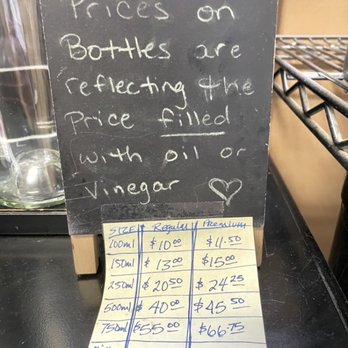 Prices on
Bottles are
reflecting the
Price filled
with oil or
Vinegar ♡
SIZE Regular Premium
100ml $10.00 $11.50
150ml $13.00 $15.00
250ml $20.50 $24.25
500ml $40.00 $45.50
750ml $55.00 $66.75